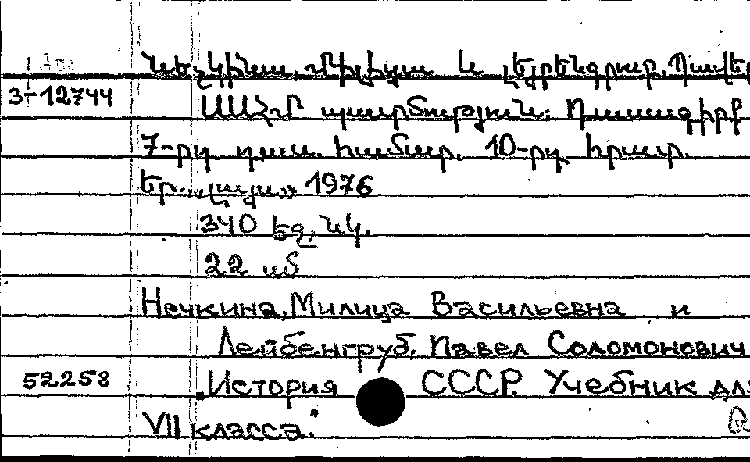 Նեչկինա, Միլիցա և Լեյբենգրուբ, Պավել
3+12744
ՍՍՀՄ պատմություն: Դասագիրք
7-րդ դաս. համար. 10-րդ հրատ.
Եր., «Լույս» 1976
340 էջ, նկ.
22 սմ
Нечкина, Милица Васильевна и
Лейбенгруб, Павел Соломонович
52258 История СССР. Учебник для
VII класса.